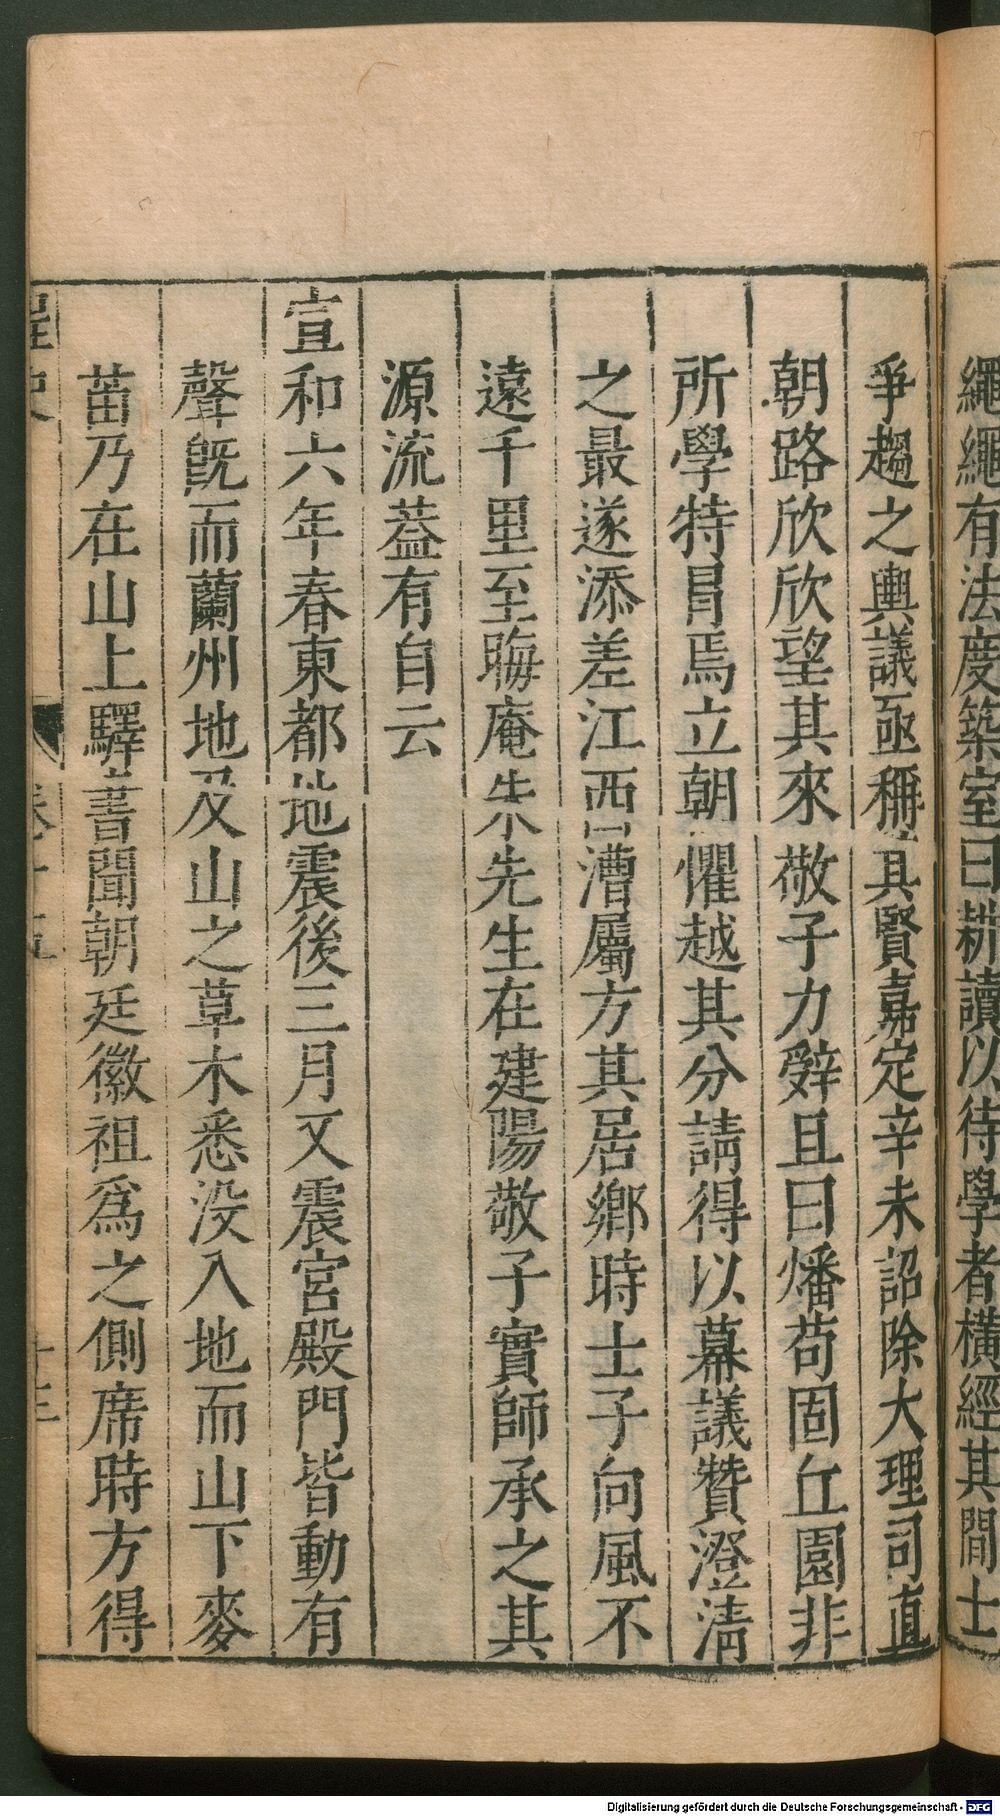 繩繩有法度築室曰耕讀以待學者橫經其間士
爭趨之輿議亟稱其賢嘉定辛未詔除大理司直
朝路欣欣望其來敬子力辭且曰燔苟固丘園非
所學特冒焉立朝懼越其分請得以幕議贊澄清
之最遂添差江西漕屬方其居鄉時士子向風不
遠千里至晦庵朱先生在建陽敬子實師承之其
源流葢有自云
宣和六年春東都地震後三月又震宮殿門皆動有
聲旣而蘭州地及山之草木悉没入地而山下麥
苗乃在山上驛書聞朝廷徽祖爲之側席時方得
桯史
卷十五
十三
Digitalisierung gefördert durch die Deutsche Forschungsgemeinschaft - DFG